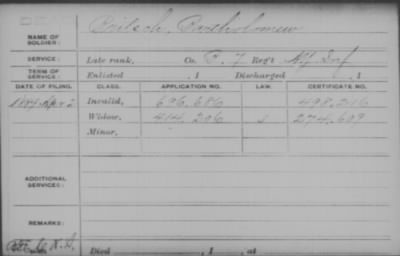 NAME OF SOLDIER: Britsch, Bartholomew
SERVICE: Late rank, Co. B. 7 Reg't N.Y. Inf
TERM OF SERVICE: Enlisted , 1 Discharged , 1
DATE OF FILING. CLASS. APPLICATION NO. LAW. CERTIFICATE NO.
1889 Apr 2 Invalid, 696.686 498.216
Widow, 414.206 274.609
Minor,
ADDITIONAL SERVICES:
REMARKS:
Died , 1 , at